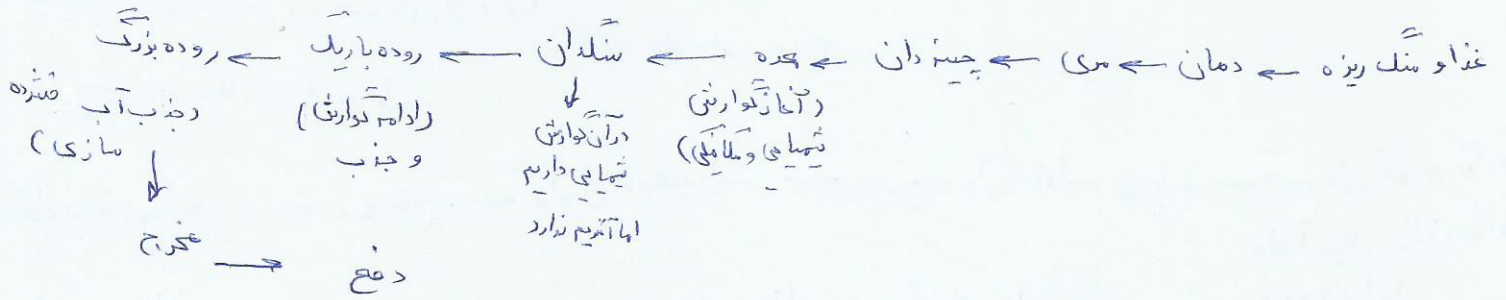 غذا و سنگ ریزه ← دهان ← مری ← چینه دان ← معده ← سنگدان ← روده باریک ← روده بزرگ
(آغاز گوارش
شیمیایی و مکانیکی)
↓
در آن گوارش
شیمیایی داریم
اما آنزیم ندارد
(ادامه گوارش)
و جذب
(جذب آب فشرده
سازی)
↓
مخرج → دفع